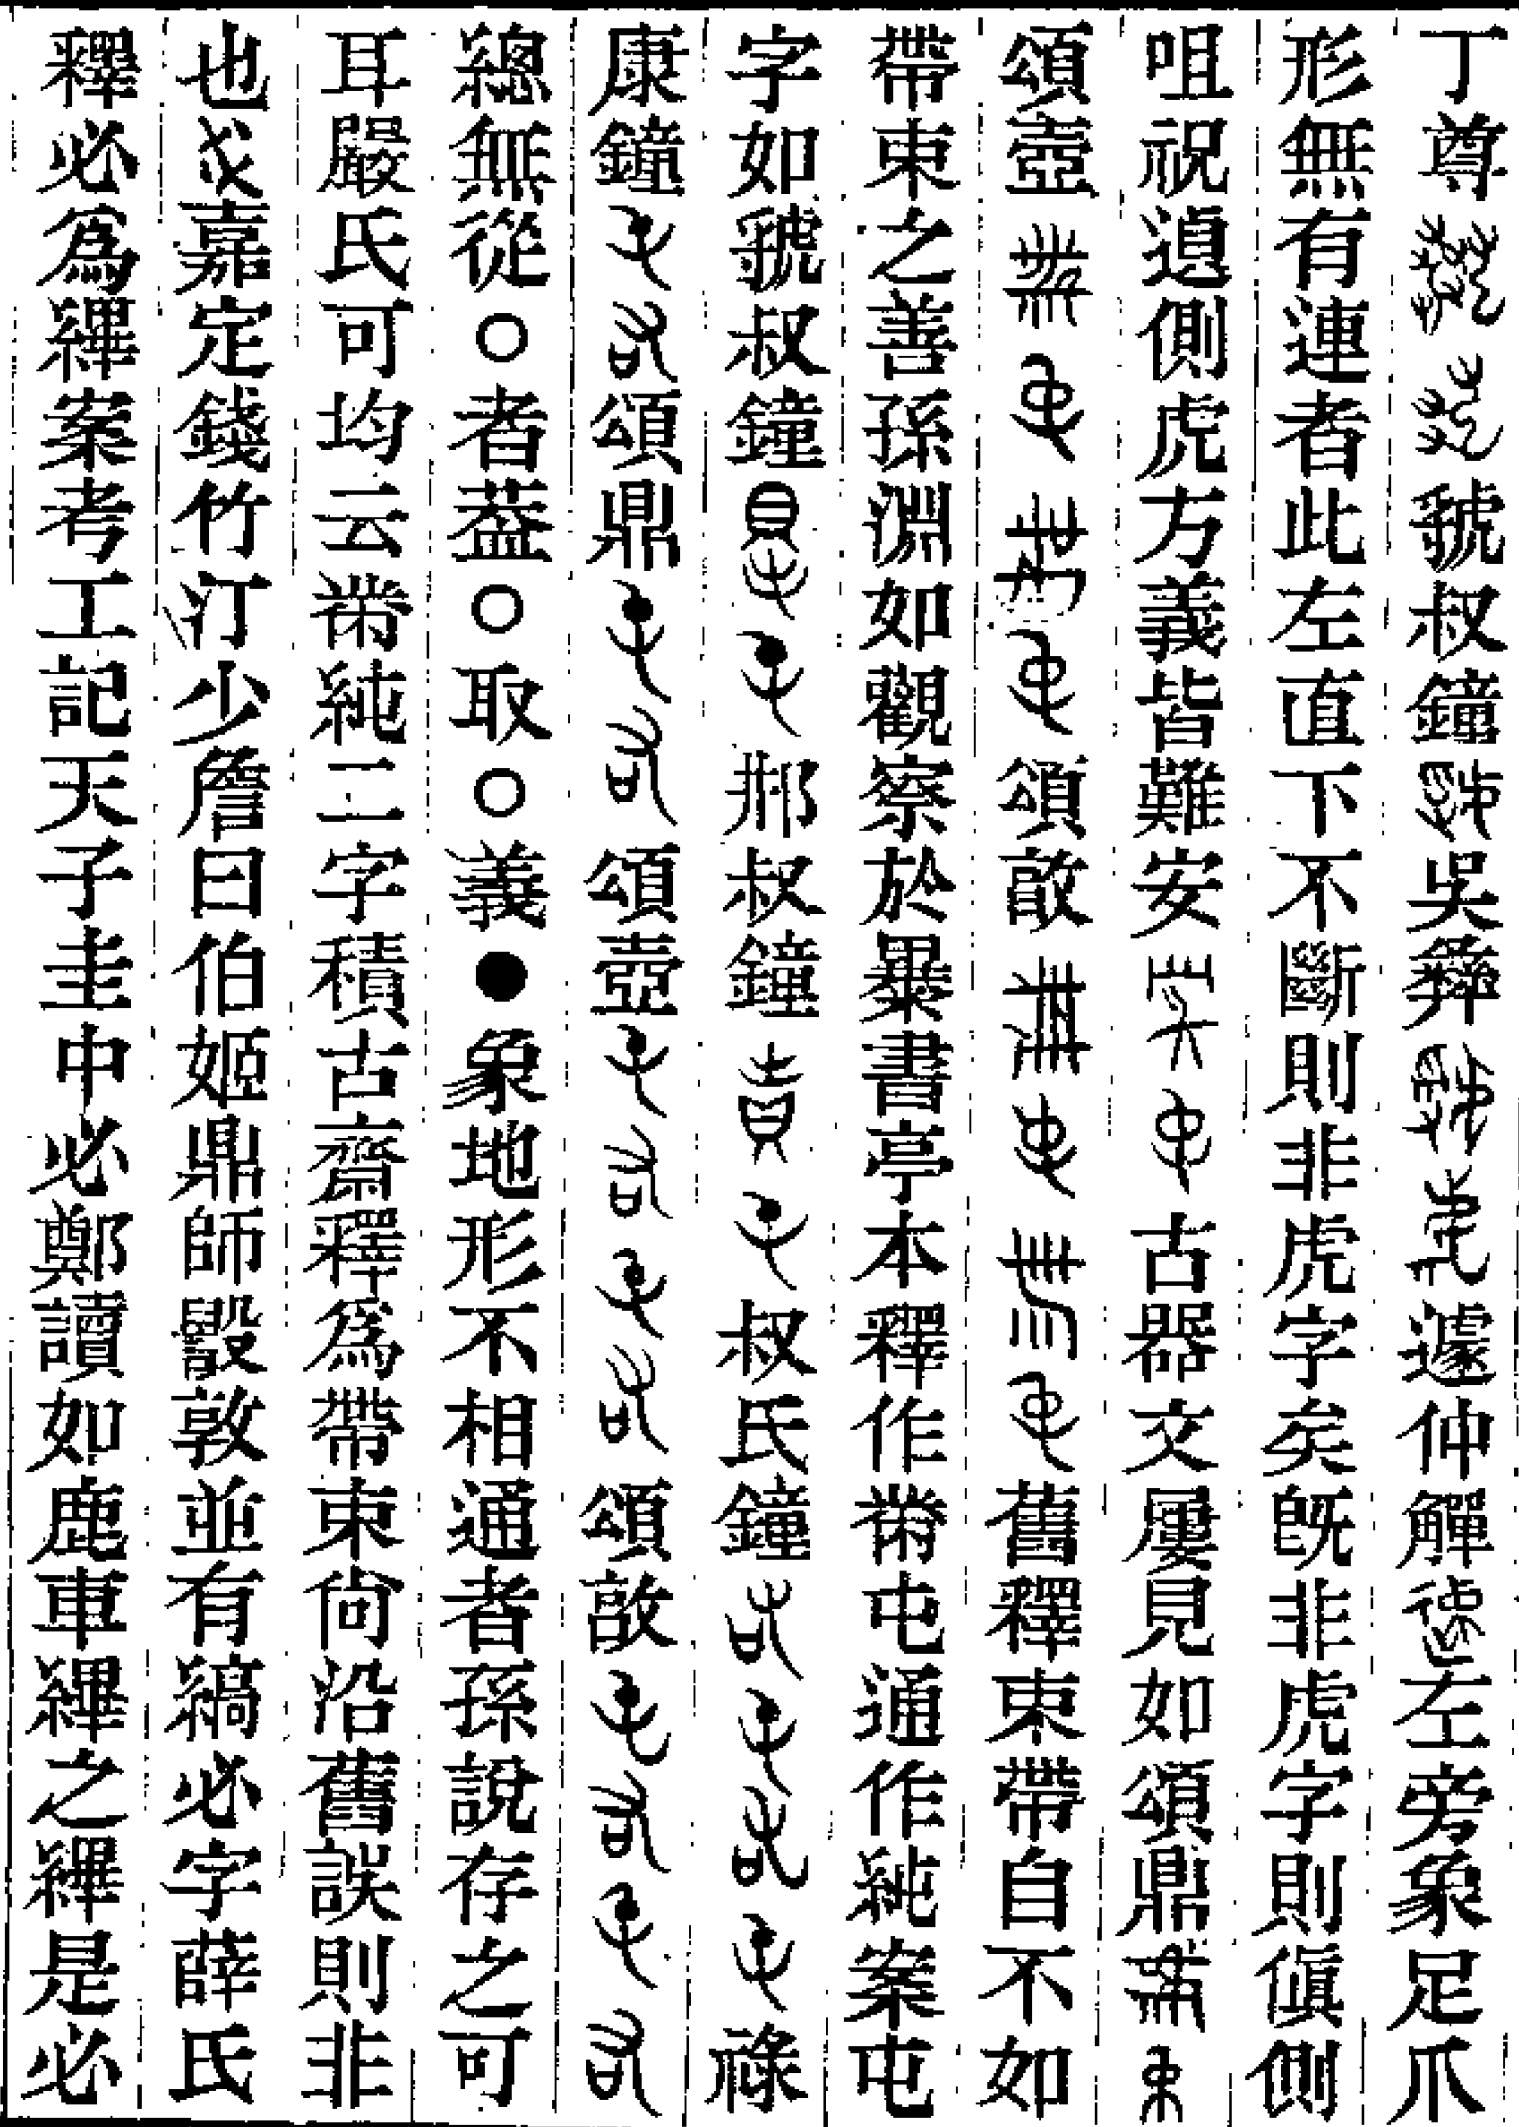 丁尊虢叔鐘吳彝遽仲觶左旁象足爪
形無有連者此左直下不斷則非虎字矣旣非虎字則傎側
咀祝逭側虎方義皆難安古器文屢見如頌鼎
頌壺頌敦舊釋束帶自不如
帶束之善孫淵如觀察於㬥書亭本釋作黹屯通作純案屯
字如虢叔鐘邢叔鐘叔氏鐘祿
康鐘頌鼎頌壺頌敦
總無從○者葢○取○義●象地形不相通者孫說存之可
耳嚴氏可均云黹純二字積古齋釋爲帶束尙沿舊誤則非
也嘉定錢竹汀少詹曰伯姬鼎師毀敦並有縞必字薛氏
釋必爲縪案考工記天子圭中必鄭讀如鹿車縪之縪是必